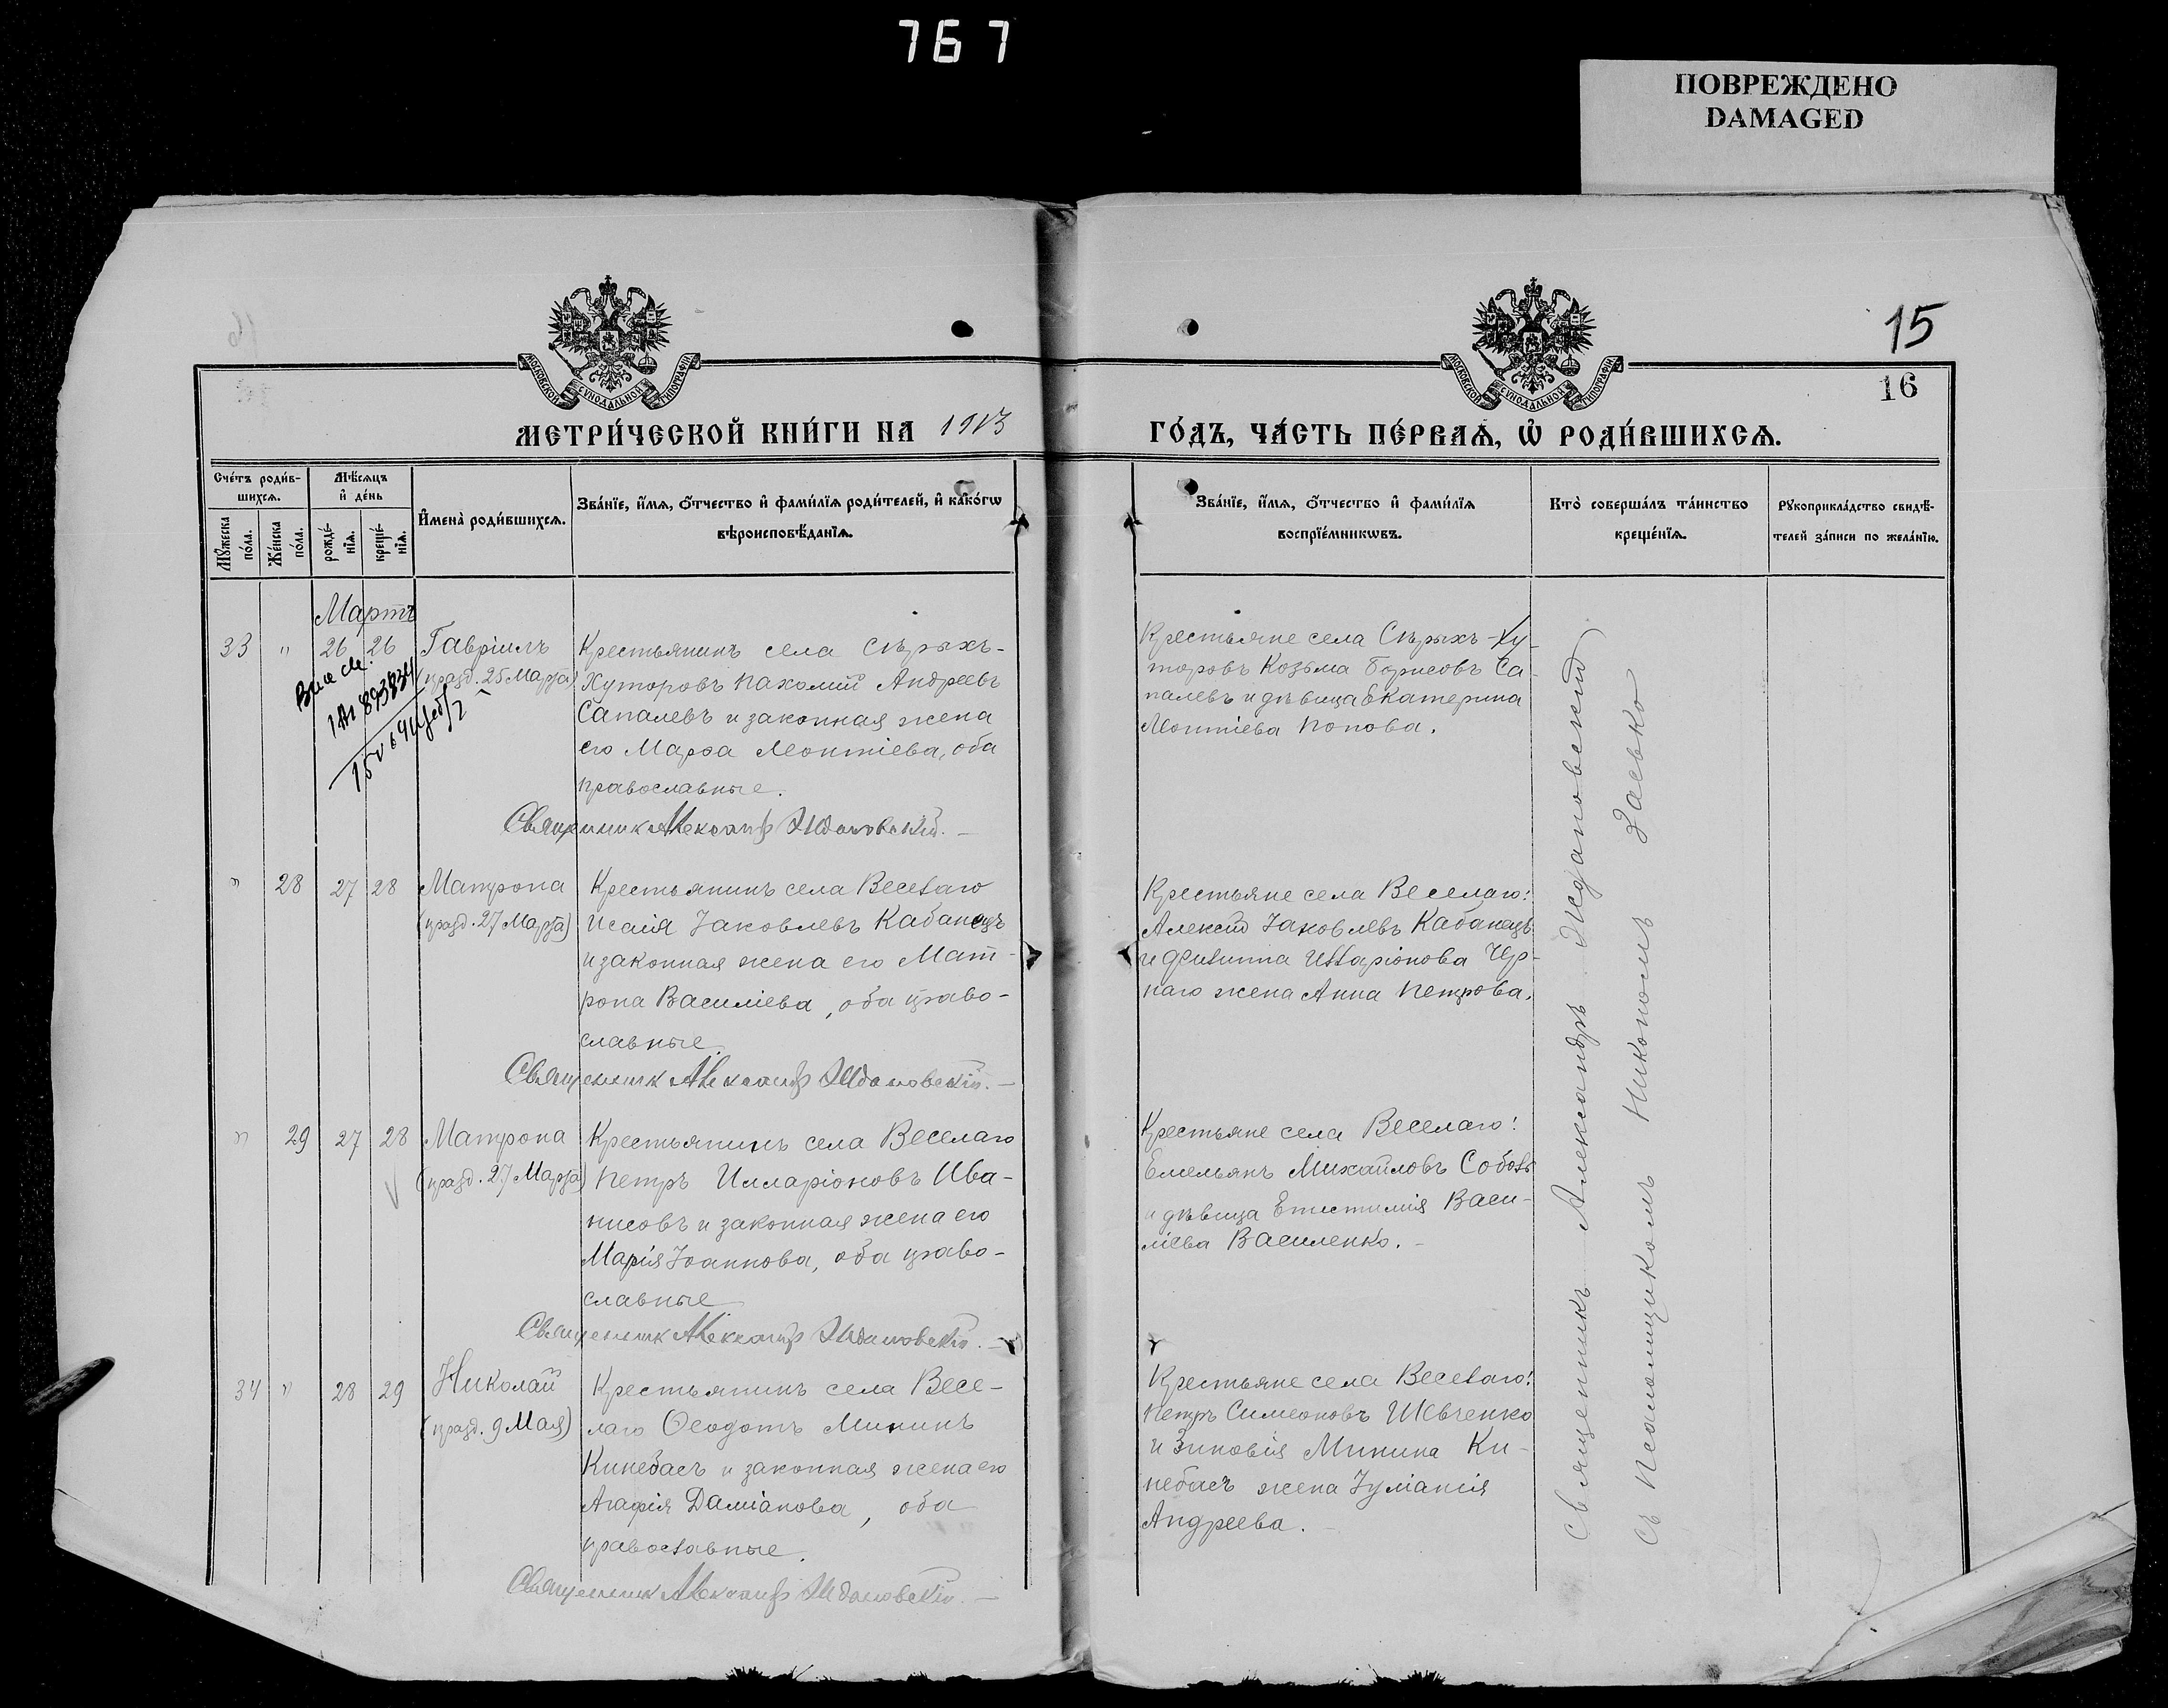 767
ПОВРЕЖДЕНО
DAMAGED
15
16
МОСКОВСКОЙ СѴНОДАЛЬНОЙ ТИПОГРАФІИ
МОСКОВСКОЙ СѴНОДАЛЬНОЙ ТИПОГРАФІИ
МЕТРИ́ЧЕСКОЙ КНИ́ГИ НА 1913
ГО́ДЪ, ЧА́СТЬ ПЕ́РВАѦ, Ѡ҆ РОДИ́ВШИХСѦ.
Сче́тъ роди́в-
шихсѧ.
Мѣ́сѧцъ
и҆ де́нь
Мꙋ́жеска
по́ла.
Же́нска
по́ла.
рожде́-
нїѧ.
креще́-
нїѧ.
И҆мена̀ роди́вшихсѧ.
Зва́нїе, и҆́мѧ, ѻ҆́тчество и҆ фами́лїѧ роди́телей, и҆ како́гѡ
вѣроисповѣ́данїѧ.
Зва́нїе, и҆́мѧ, ѻ҆́тчество и҆ фами́лїѧ
воспрїе́мникѡвъ.
Кто̀ соверша́лъ та́инство
креще́нїѧ.
Рꙋкоприкла́дство свидѣ́-
телей за́писи по жела́нїю.
Мартъ
33 " 26 26 Гавріилъ
(празд. 25 Марта)
Крестьянинъ села Сѣрыхъ-
Хуторовъ Пахомій Андреевъ
Сапалевъ и законная жена
его Марѳа Леонтіева, оба
православные.
Священникъ Александръ Ждановскій.
Крестьяне села Сѣрыхъ-Ху-
торовъ Козьма Борисовъ Са-
палевъ и дѣвица Екатерина
Леонтіева Попова.
" 28 27 28 Матрона
(празд. 27 Марта)
Крестьянинъ села Веселаго
Исаія Іаковлевъ Кабанецъ
и законная жена его Мат-
рона Василіева, оба право-
славные.
Священникъ Александръ Ждановскій.
Крестьяне села Веселаго:
Алексій Іаковлевъ Кабанецъ
и Филиппа Илларіонова
жена Анна Петрова.
" 29 27 28 Матрона
(празд. 27 Марта)
Крестьянинъ села Веселаго
Петръ Илларіоновъ Ива-
нисовъ и законная жена его
Марія Іоаннова, оба право-
славные
Священникъ Александръ Ждановскій.
Крестьяне села Веселаго:
Емельянъ Михайловъ Соболь
и дѣвица Епистимія Васи-
ліева Василенко.
34 " 28 29 Николай
(празд. 9 Мая)
Крестьянинъ села Весе-
лаго Ѳеодотъ Мининъ
Кинебасъ и законная жена его
Агафія Даміанова, оба
православные.
Священникъ Александръ Ждановскій.
Крестьяне села Веселаго:
Петръ Симеоновъ Шевченко
и Зиновія Минина Ки-
небасъ жена Іуліанія
Андреева.
Священникъ Александръ Ждановскій
съ псаломщикомъ Никополъ Заевко